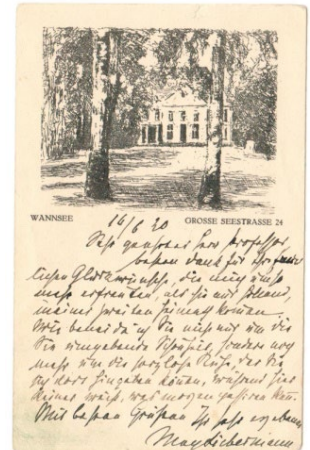 WANNSEE
GROSSE SEESTRASSE 24
16/6 20
Sehr geehrter Herr Professor,
besten Dank für Ihre freund
lichen Glückwünsche, die mich umso
mehr erfreuten, als sie aus
meiner zweiten Heimat kamen.
Wie beneide ich Sie nicht nur um die
Sie umgebende Schönheit, sondern noch
mehr um die sorglose Ruhe, der Sie
sich dort hingeben können, während hier
keiner weiß, was morgen passieren kann.
Mit besten Grüßen Ihr sehr ergebener
Max Liebermann